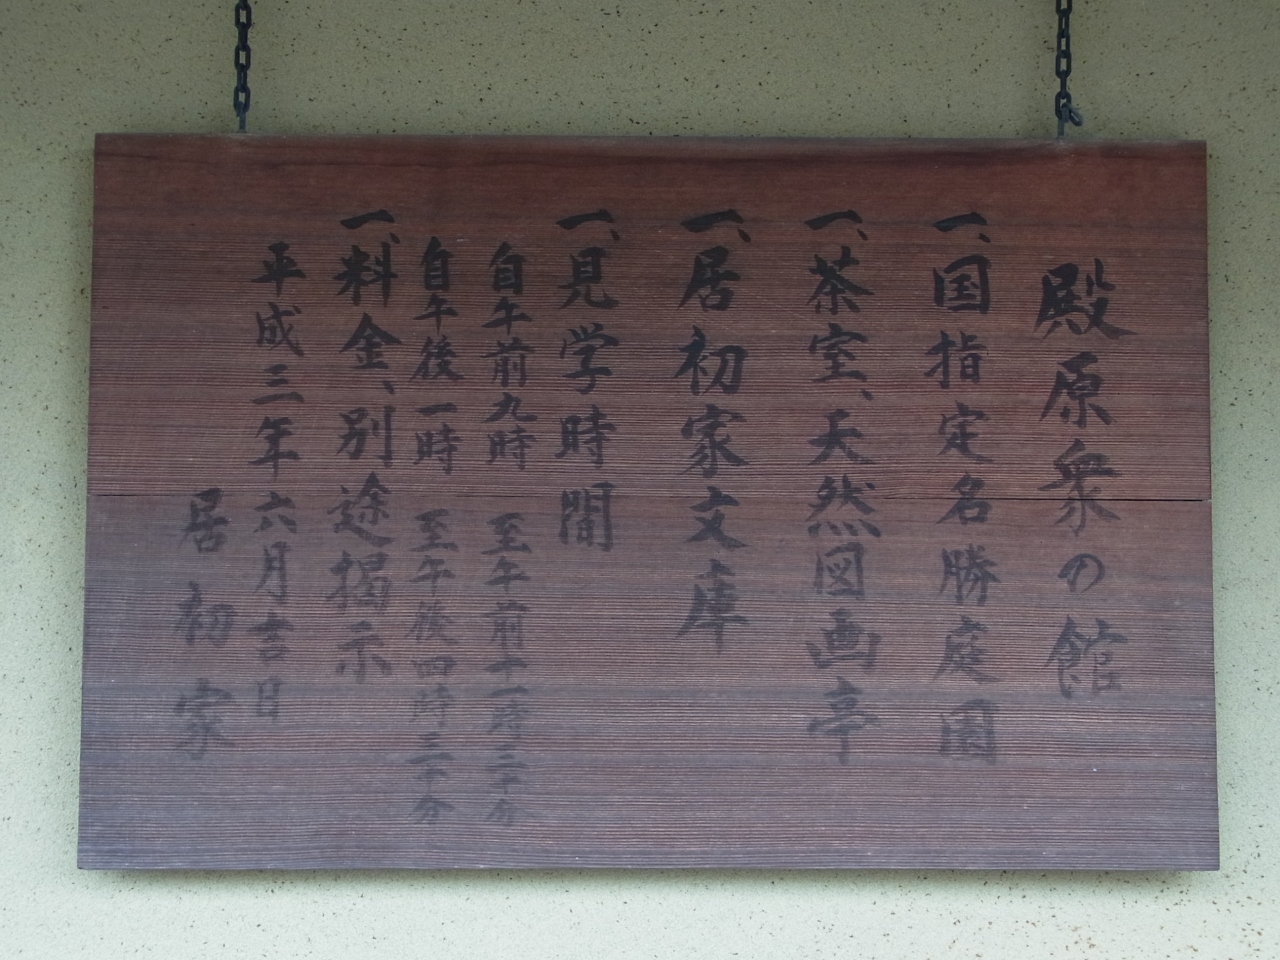 殿原衆の館
一、国指定名勝庭園
一、茶室、天然図画亭
一、居初家文庫
一、見学時間
自午前九時 至午前十一時三十分
自午後一時 至午後四時三十分
一、料金、別途掲示
平成三年六月吉日
居初家